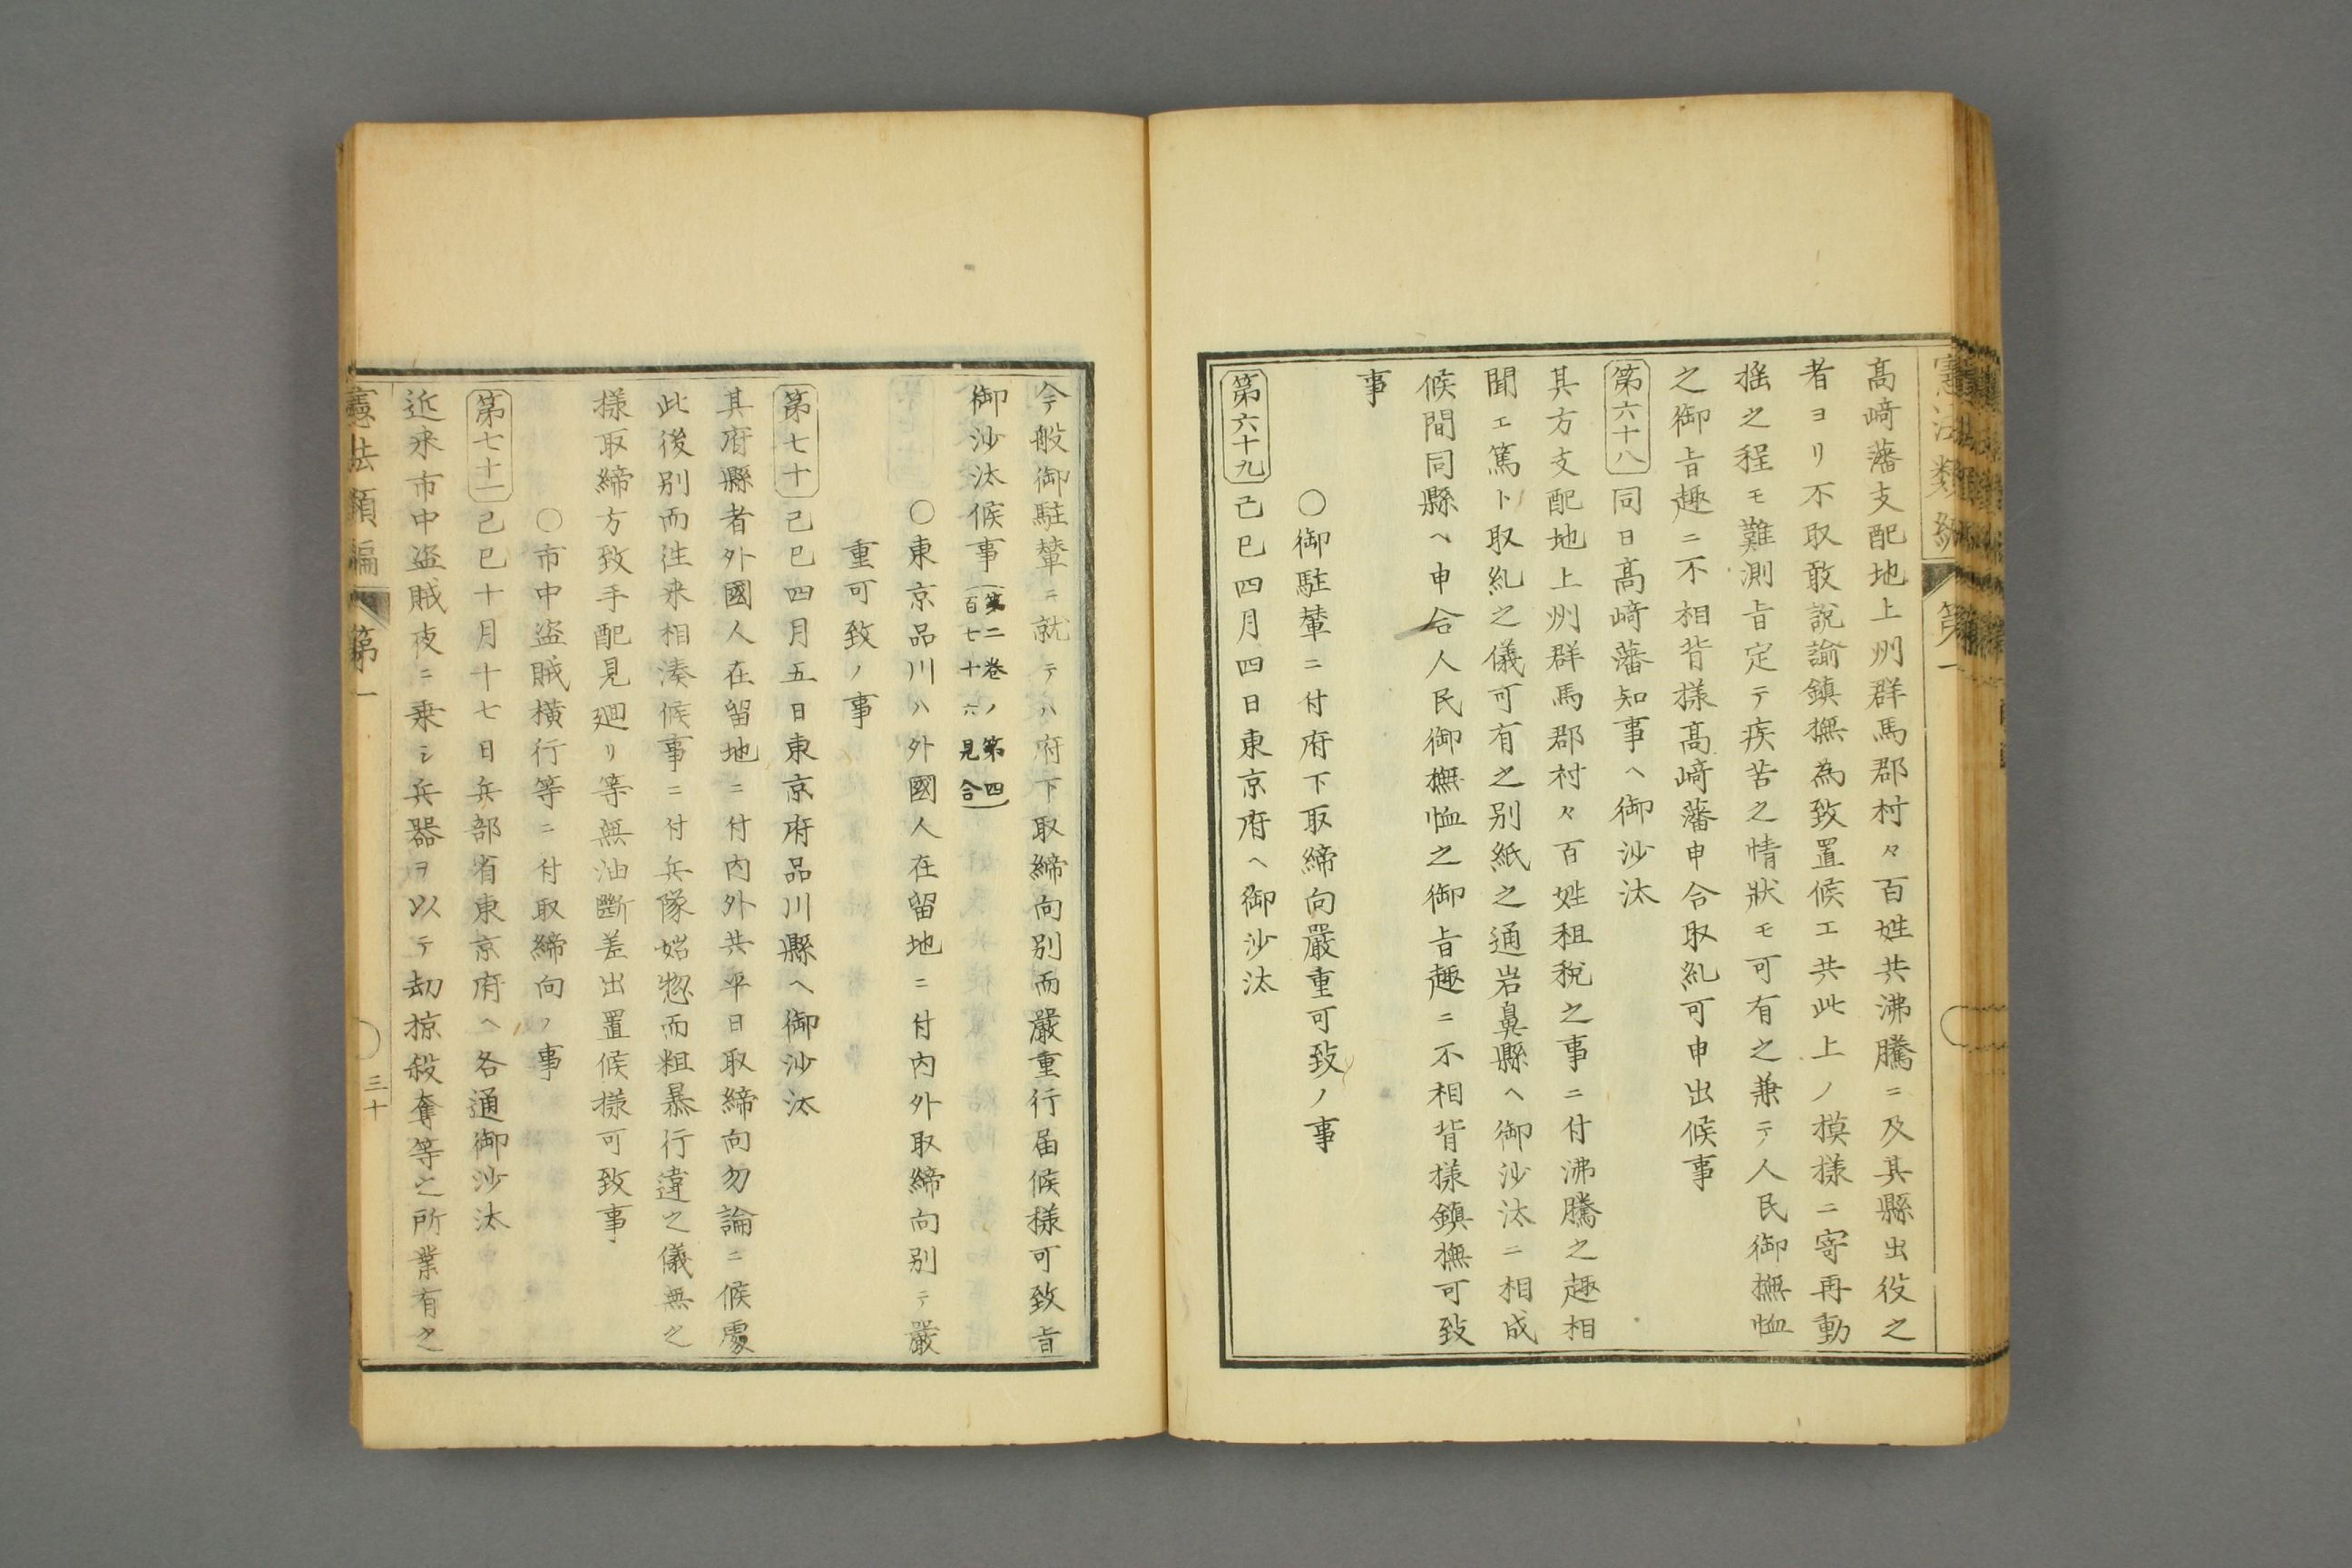 憲法類編 第一
高﨑藩支配地上州群馬郡村々百姓共沸騰ニ及其縣出役之
者ヨリ不取敢說諭鎮撫為致置候エ共此上ノ模樣ニ寄再動
揺之程モ難測旨定テ疾苦之情狀モ可有之兼テノ人民御撫恤
之御旨趣ニ不相背樣高﨑藩申合取糺可申出候事
第六十八 同日高﨑藩知事ヘ御沙汰
其方支配地上州群馬郡村々百姓租税之事ニ付沸騰之趣相
聞エ篤ト取糺之儀可有之别紙之通岩鼻縣ヘ御沙汰ニ相成
候間同縣ヘ申合人民御撫恤之御旨趣ニ不相背樣鎮撫可致
事
〇御駐輦ニ付府下取締向嚴重可致ノ事
第六十九 己巳四月四日東京府ヘ御沙汰
今般御駐輦ニ就テハ府下取締向别而嚴重行届候樣可致旨
御沙汰候事(第二卷ノ第四
百七十六見合)
〇東京品川ハ外國人在留地ニ付内外取締向别テ嚴
重可致ノ事
第七十 己巳四月五日東京府品川縣ヘ御沙汰
其府縣者外國人在留地ニ付内外共平日取締向勿論ニ候處
此後别而往来相湊候事ニ付兵隊始惣而粗暴行違之儀無之
樣取締方致手配見廻リ等無油斷差出置候樣可致事
〇市中盜賊横行等ニ付取締向ノ事
第七十一 己巳十月十七日兵部省東京府ヘ各通御沙汰
近来市中盗賊夜ニ乗シ兵器ヲ以テ劫掠殺奪等之所業有之
憲法類編 第一 三十